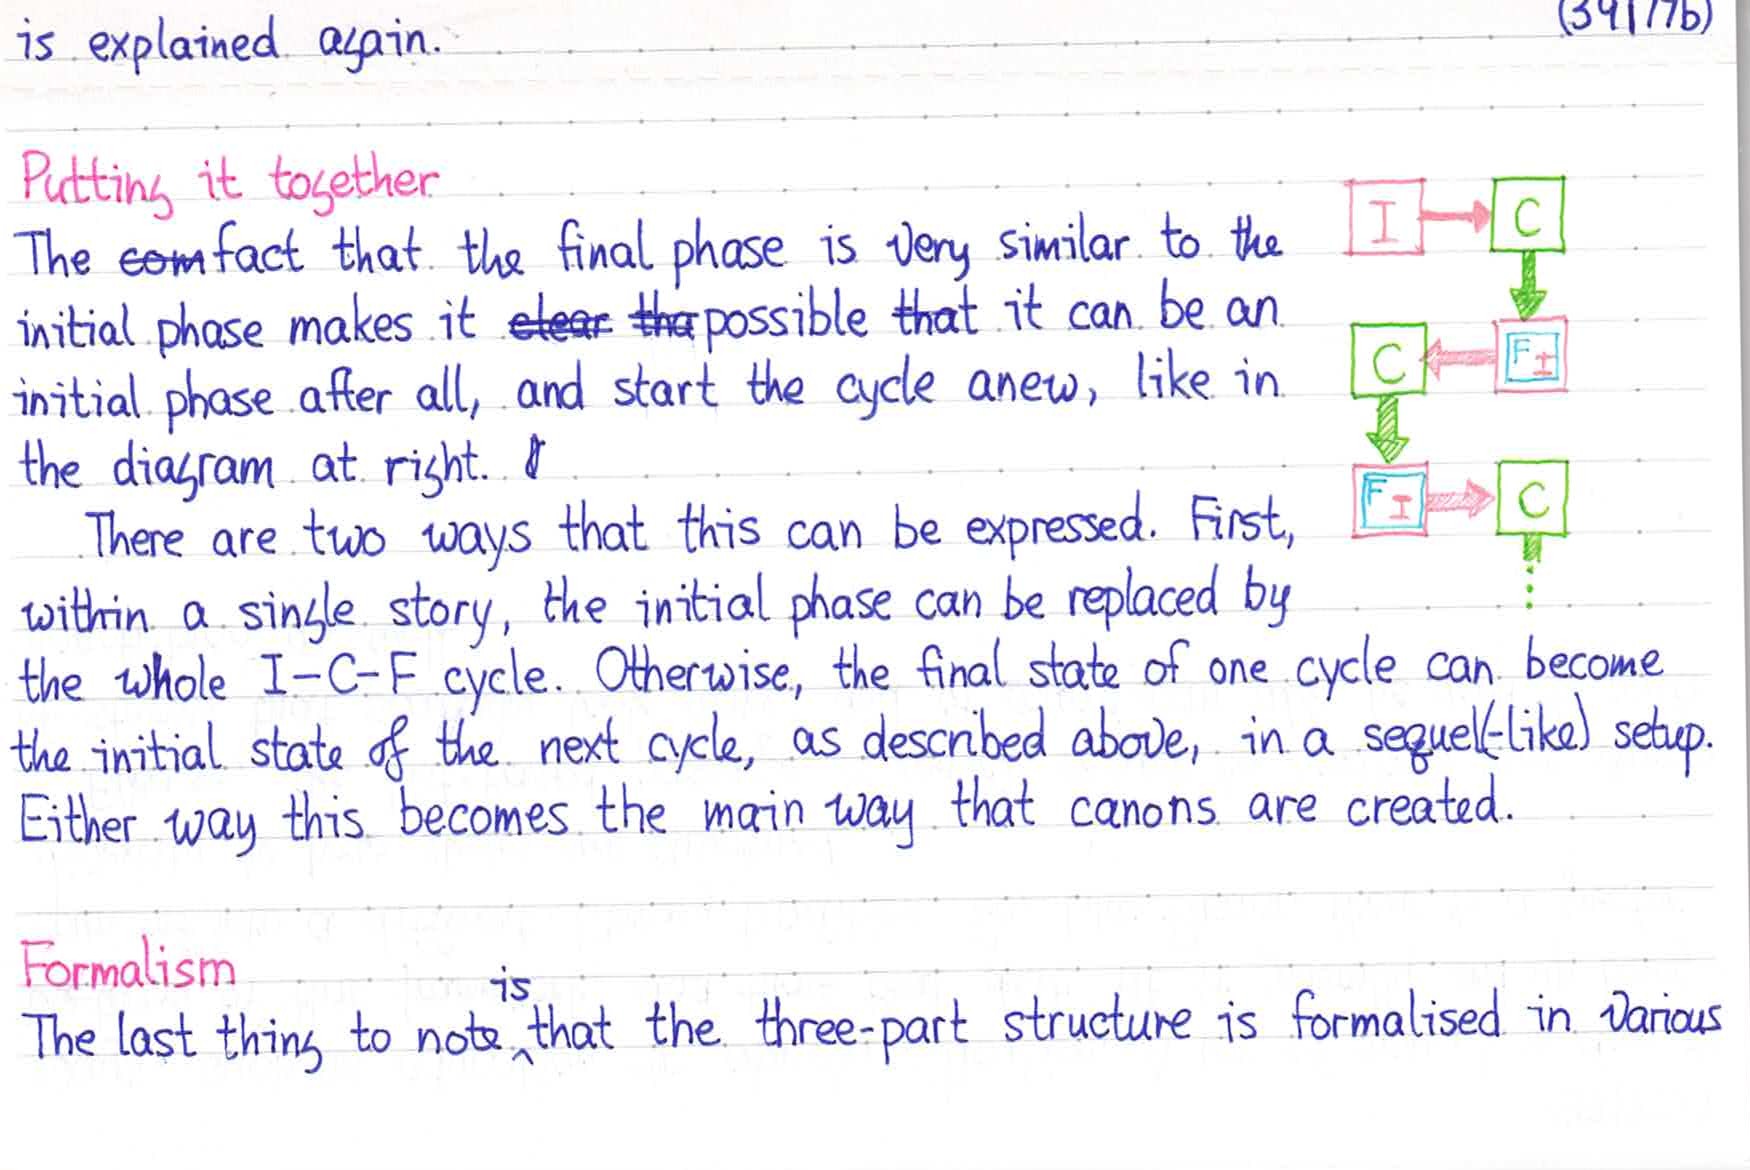 (39177b)
is explained again.
Putting it together
The com fact that the final phase is very similar to the
initial phase makes it clear tha possible that it can be an
initial phase after all, and start the cycle anew, like in
the diagram at right.
There are two ways that this can be expressed. First,
within a single story, the initial phase can be replaced by
the whole I-C-F cycle. Otherwise, the final state of one cycle can become
the initial state of the next cycle, as described above, in a sequel(-like) setup.
Either way this becomes the main way that canons are created.
I C
C FI
FI C
Formalism
is
The last thing to note ^ that the three-part structure is formalised in various